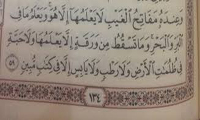 وَعِندَهُ مَفَاتِحُ الْغَيْبِ لَا يَعْلَمُهَا إِلَّا هُوَ وَيَعْلَمُ مَا فِي
الْبَرِّ وَالْبَحْرِ وَمَا تَسْقُطُ مِن وَرَقَةٍ إِلَّا يَعْلَمُهَا وَلَا حَبَّةٍ
فِي ظُلُمَاتِ الْأَرْضِ وَلَا رَطْبٍ وَلَا يَابِسٍ إِلَّا فِي كِتَابٍ مُّبِينٍ ٥٩
١٣٤